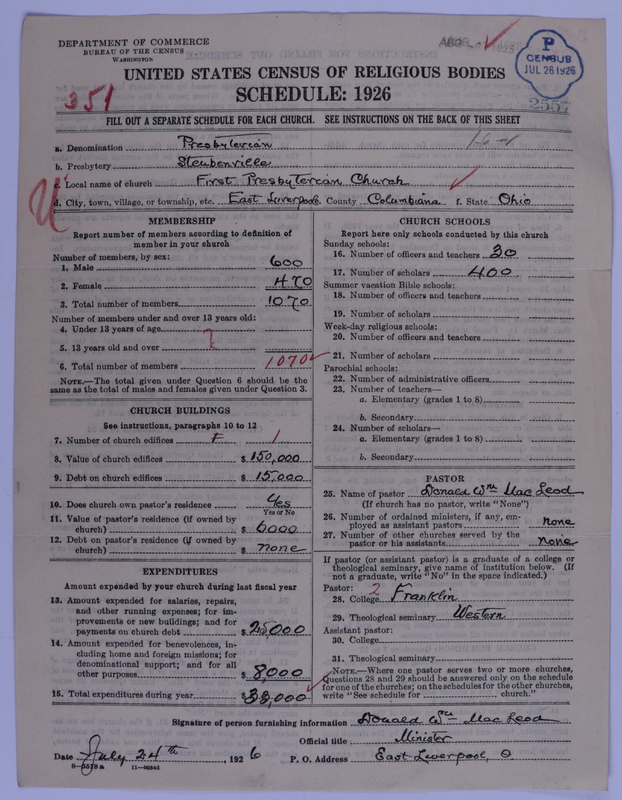 DEPARTMENT OF COMMERCE
BUREAU OF THE CENSUS
WASHINGTON
P
CENSUS
JUL 26 1926
2557
UNITED STATES CENSUS OF RELIGIOUS BODIES
351
SCHEDULE: 1926
FILL OUT A SEPARATE SCHEDULE FOR EACH CHURCH. SEE INSTRUCTIONS ON THE BACK OF THIS SHEET
a. Denomination Presbyterian
b. Presbytery Steubenville
c. Local name of church First Presbyterian Church
d. City, town, village, or township, etc. East Liverpool e. County Columbiana f. State Ohio
MEMBERSHIP
Report number of members according to definition of
member in your church
Number of members, by sex:
1. Male 600
2. Female 470
3. Total number of members 1070
Number of members under and over 13 years old:
4. Under 13 years of age
?
5. 13 years old and over
6. Total number of members 1070
NOTE.—The total given under Question 6 should be the
same as the total of males and females given under Question 3.
CHURCH BUILDINGS
See instructions, paragraphs 10 to 12
7. Number of church edifices 1
8. Value of church edifices $ 150,000
9. Debt on church edifices $ 15.000
10. Does church own pastor's residence Yes
Yes or No
11. Value of pastor's residence (if owned by
church) $ 6000
12. Debt on pastor's residence (if owned by
church) $ none
EXPENDITURES
Amount expended by your church during last fiscal year
13. Amount expended for salaries, repairs,
and other running expenses; for im-
provements or new buildings; and for
payments on church debt $ 25000
14. Amount expended for benevolences, in-
cluding home and foreign missions; for
denominational support; and for all
other purposes $ 8,000
15. Total expenditures during year $ 33,000
CHURCH SCHOOLS
Report here only schools conducted by this church
Sunday schools:
16. Number of officers and teachers 30
17. Number of scholars 400
Summer vacation Bible schools:
18. Number of officers and teachers
19. Number of scholars
Week-day religious schools:
20. Number of officers and teachers
21. Number of scholars
Parochial schools:
22. Number of administrative officers
23. Number of teachers—
a. Elementary (grades 1 to 8)
b. Secondary
24. Number of scholars—
a. Elementary (grades 1 to 8)
b. Secondary
PASTOR
25. Name of pastor Donald Wm Mac Leod
(If church has no pastor, write "None")
26. Number of ordained ministers, if any, em-
ployed as assistant pastors none
27. Number of other churches served by the
pastor or his assistants none
If pastor (or assistant pastor) is a graduate of a college or
theological seminary, give name of institution below. (If
not a graduate, write "No" in the space indicated.)
Pastor: 2
28. College Franklin
29. Theological seminary Western
Assistant pastor:
30. College
31. Theological seminary
NOTE.—Where one pastor serves two or more churches,
Questions 28 and 29 should be answered only on the schedule
for one of the churches; on the schedules for the other churches,
write "See schedule for church."
Signature of person furnishing information Donald Wm Mac Leod
Official title Minister
Date July 24th, 1926 P. O. Address East Liverpool, O
8-5318a 11-90544